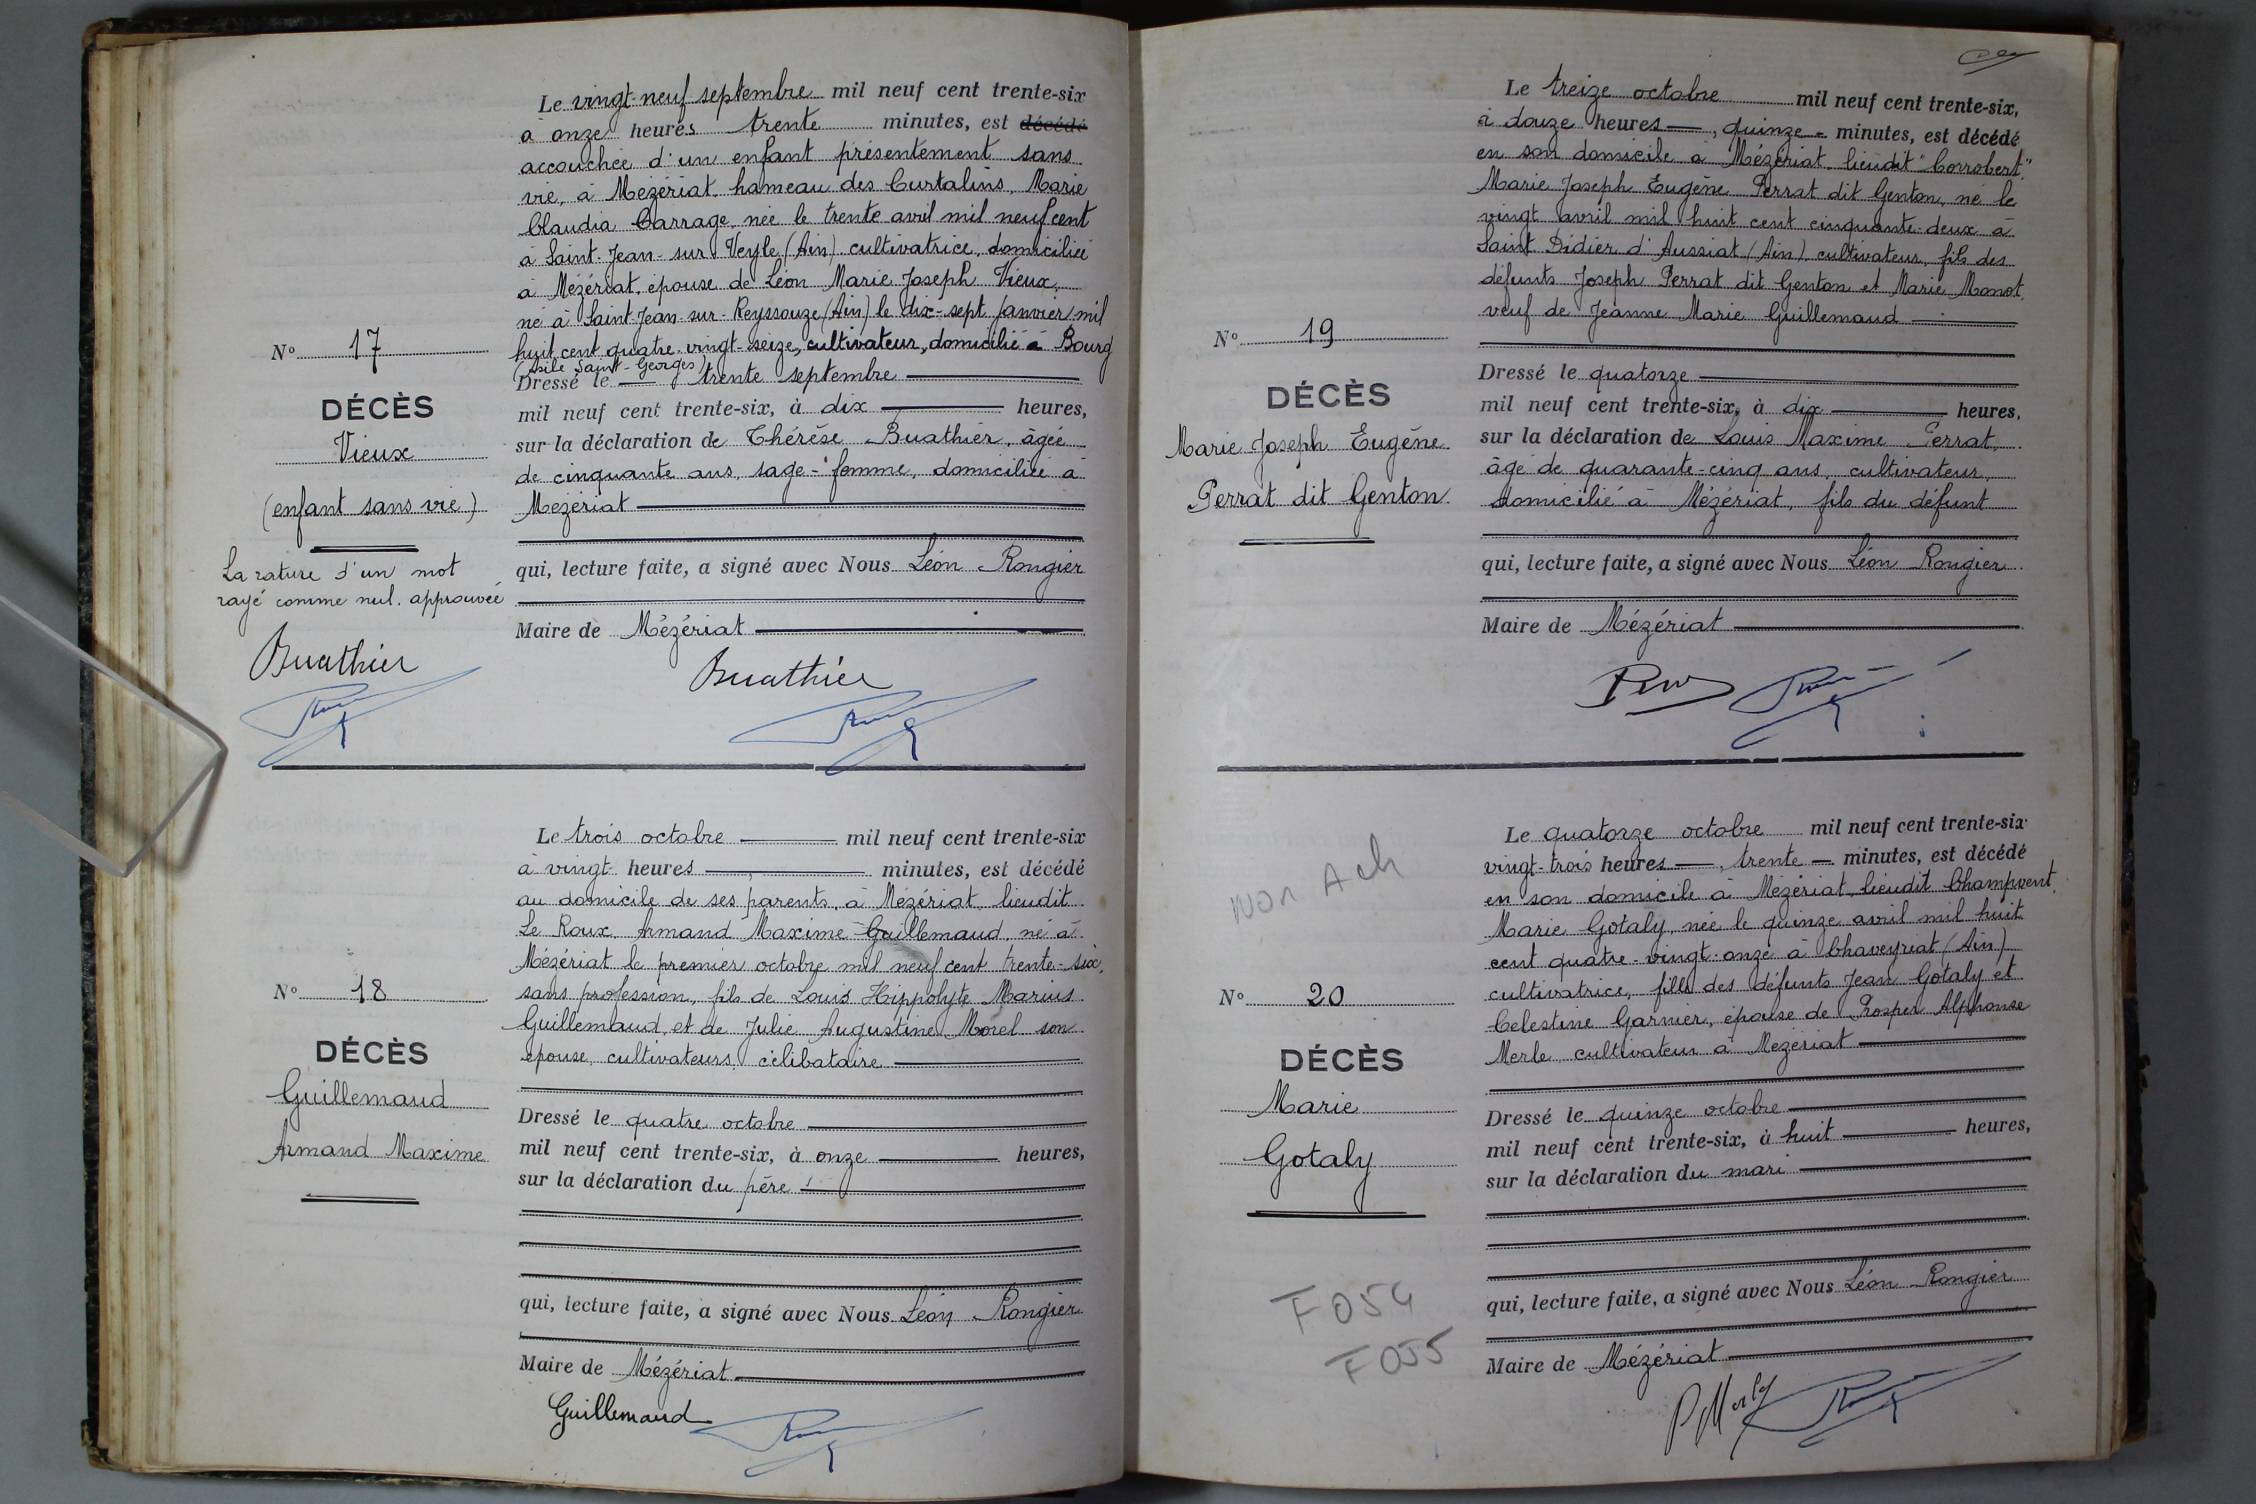 Le vingt-neuf septembre mil neuf cent trente-six
à onze heures trente minutes, est décédé
accouchée d'un enfant présentement sans
vie, à Mézériat, hameau des Curtalins, Marie
Claudia Carrage, née le trente avril mil neuf cent
à Saint-Jean-sur Veyle (Ain) cultivatrice, domiciliée
à Mézériat, épouse de Léon Marie Joseph Vieux,
né à Saint-Jean-sur-Reyssouze (Ain) le dix-sept janvier mil
huit cent quatre-vingt-seize, cultivateur, domicilié à Bourg
(Asile Saint-Georges)
Dressé le trente septembre
mil neuf cent trente-six, à dix heures,
sur la déclaration de Thérèse Buathier, âgée
de cinquante ans, sage-femme, domiciliée à
Mézériat
qui, lecture faite, a signé avec Nous Léon Rongier
Maire de Mézériat
Buathier
N° 17
DÉCÈS
Vieux
(enfant sans vie)
La rature d'un mot
rayé comme nul. approuvée
Buathier
Le trois octobre mil neuf cent trente-six
à vingt heures minutes, est décédé
au domicile de ses parents, à Mézériat, lieudit
Le Roux, Armand Maxime Guillemaud, né à
Mézériat le premier octobre mil neuf cent trente-six,
sans profession, fils de Louis Hippolyte Marius
Guillemaud, et de Julie Augustine Morel son
épouse, cultivateurs, célibataire
Dressé le quatre octobre
mil neuf cent trente-six, à onze heures,
sur la déclaration du père
qui, lecture faite, a signé avec Nous Léon Rongier
Maire de Mézériat
Guillemaud
N° 18
DÉCÈS
Guillemaud
Armand Maxime
Le treize octobre mil neuf cent trente-six,
à douze heures, quinze minutes, est décédé
en son domicile à Mézériat, lieudit "Corrobert",
Marie Joseph Eugène Perrat dit Genton, né le
vingt avril mil huit cent cinquante-deux à
Saint Didier d'Aussiat (Ain) cultivateur, fils des
défunts Joseph Perrat dit Genton et Marie Monot,
veuf de Jeanne Marie Guillemaud
Dressé le quatorze
mil neuf cent trente-six, à dix heures,
sur la déclaration de Louis Maxime Perrat,
âgé de quarante-cinq ans, cultivateur,
domicilié à Mézériat, fils du défunt
qui, lecture faite, a signé avec Nous Léon Rongier
Maire de Mézériat
N° 19
DÉCÈS
Marie Joseph Eugène
Perrat dit Genton
Le quatorze octobre mil neuf cent trente-six
vingt-trois heures, trente minutes, est décédé
en son domicile à Mézériat, lieudit Champvent,
Marie Gotaly, née le quinze avril mil huit
cent quatre-vingt-onze à Chaveyriat (Ain)
cultivatrice, fille des défunts Jean Gotaly et
Célestine Garnier, épouse de Prosper Alphonse
Merle cultivateur à Mézériat
Dressé le quinze octobre
mil neuf cent trente-six, à huit heures,
sur la déclaration du mari
qui, lecture faite, a signé avec Nous Léon Rongier
Maire de Mézériat
non Ach
N° 20
DÉCÈS
Marie
Gotaly
F054
F055